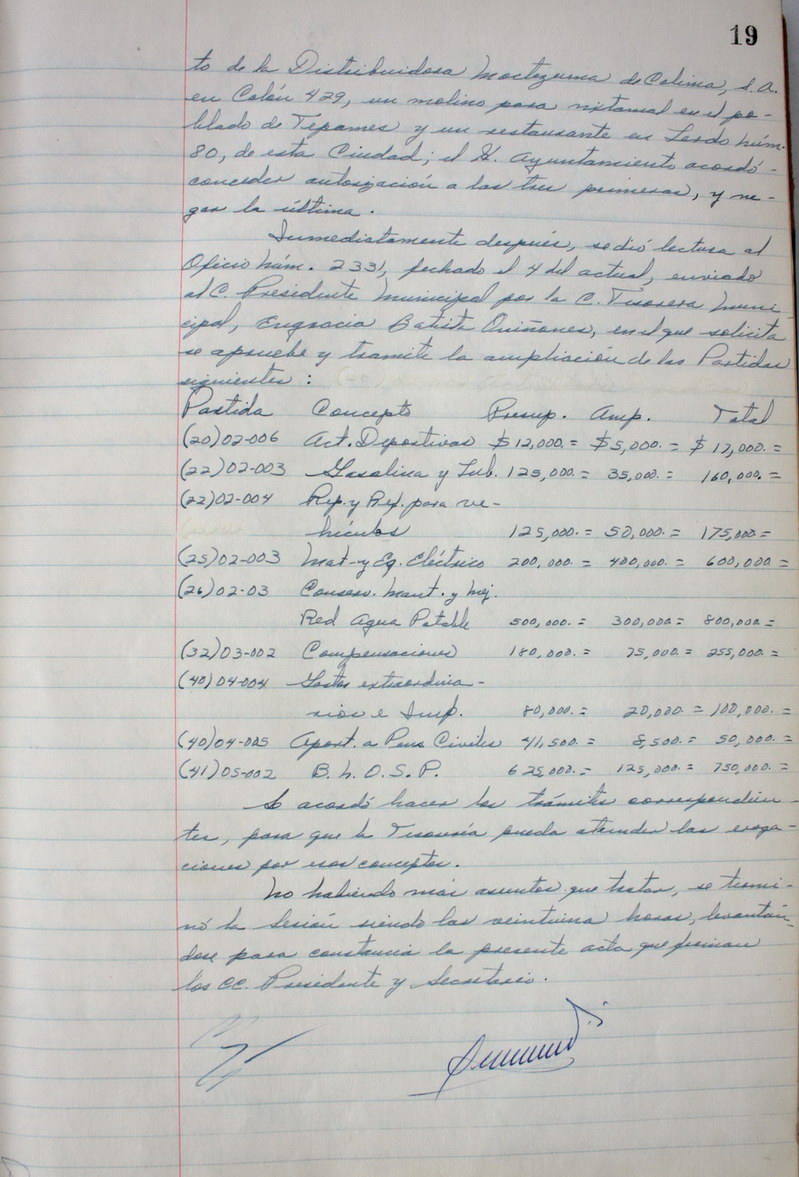 19
to de la Distribuidora Moctezuma de Colima, S.A.
en Colón 429, un molino para nixtamal en el po-
blado de Tepames y un restaurante en Lerdo Núm.
80, de esta Ciudad; el H. Ayuntamiento acordó -
conceder autorización a las tres primeras, y ne-
gar la última.
Inmediatamente después, se dió lectura al
Oficio Núm. 233, fechado el 4 del actual, enviado
al C. Presidente Municipal por la C. Tesorera Muni-
cipal, Engracia Batista Quiñones, en el que solicita
se apruebe y tramite la ampliación de las Partidas
siguientes:
Partida Concepto Presup. Amp. Total
(20)02-006 Act. Deportivas $12,000.= $5,000.= $17,000.=
(22)02-003 Gasolina y Lub. 125,000.= 35,000.= 160,000.=
(22)02-004 Rep. y Ref. para ve-
hículos 125,000.= 50,000.= 175,000.=
(25)02-003 Mat. y Eq. Eléctrico 200,000.= 400,000.= 600,000.=
(26)02-03 Conserv. Mant. y Mej.
Red Agua Potable 500,000.= 300,000.= 800,000.=
(32)03-002 Compensaciones 180,000.= 75,000.= 255,000.=
(40)04-004 Gastos extraordina-
rios e Imp. 80,000.= 20,000.= 100,000.=
(40)04-005 Aport. a Pens Civiles 41,500.= 8,500.= 50,000.=
(41)05-002 B. L. O. S. P. 625,000.= 125,000.= 750,000.=
Se acordó hacer los trámites correspondien-
tes, para que la Tesorería pueda atender las eroga-
ciones por esos conceptos.
No habiendo más asuntos que tratar, se termi-
nó la Sesión siendo las veintiuna horas, levantán-
dose para constancia la presente acta que firman
los CC. Presidente y Secretario.